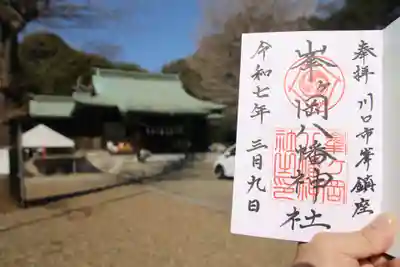 奉拝 川口市峯鎮座
峯ヶ岡八幡神社
令和七年 三月九日